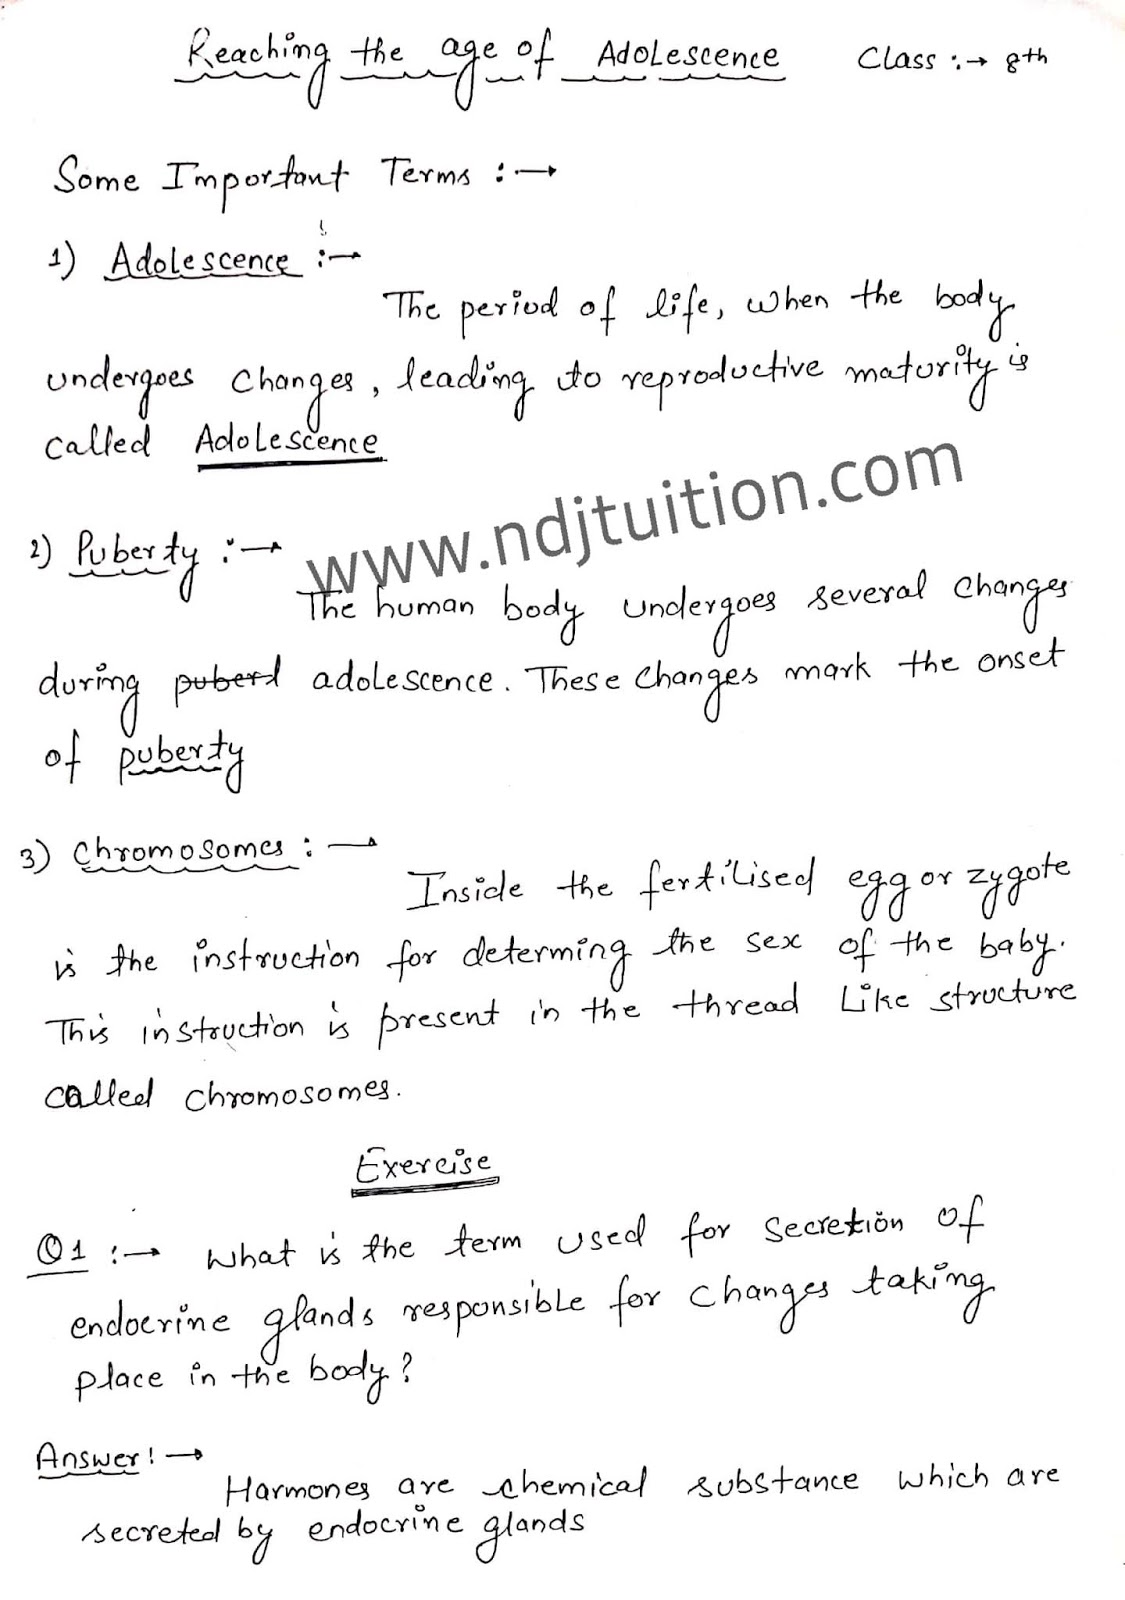 Reaching the age of Adolescence Class :→ 8th
Some Important Terms :→
1) Adolescence :→
The period of life, when the body
undergoes changes, leading to reproductive maturity is
called Adolescence
www.ndjtuition.com
2) Puberty :→
The human body undergoes several changes
during puberd adolescence. These changes mark the onset
of puberty
3) Chromosomes :→
Inside the fertilised egg or zygote
is the instruction for determing the sex of the baby.
This instruction is present in the thread like structure
called chromosomes.
Exercise
Q1 :→ What is the term used for secretion of
endocrine glands responsible for changes taking
place in the body?
Answer! →
Harmones are chemical substance which are
secreted by endocrine glands